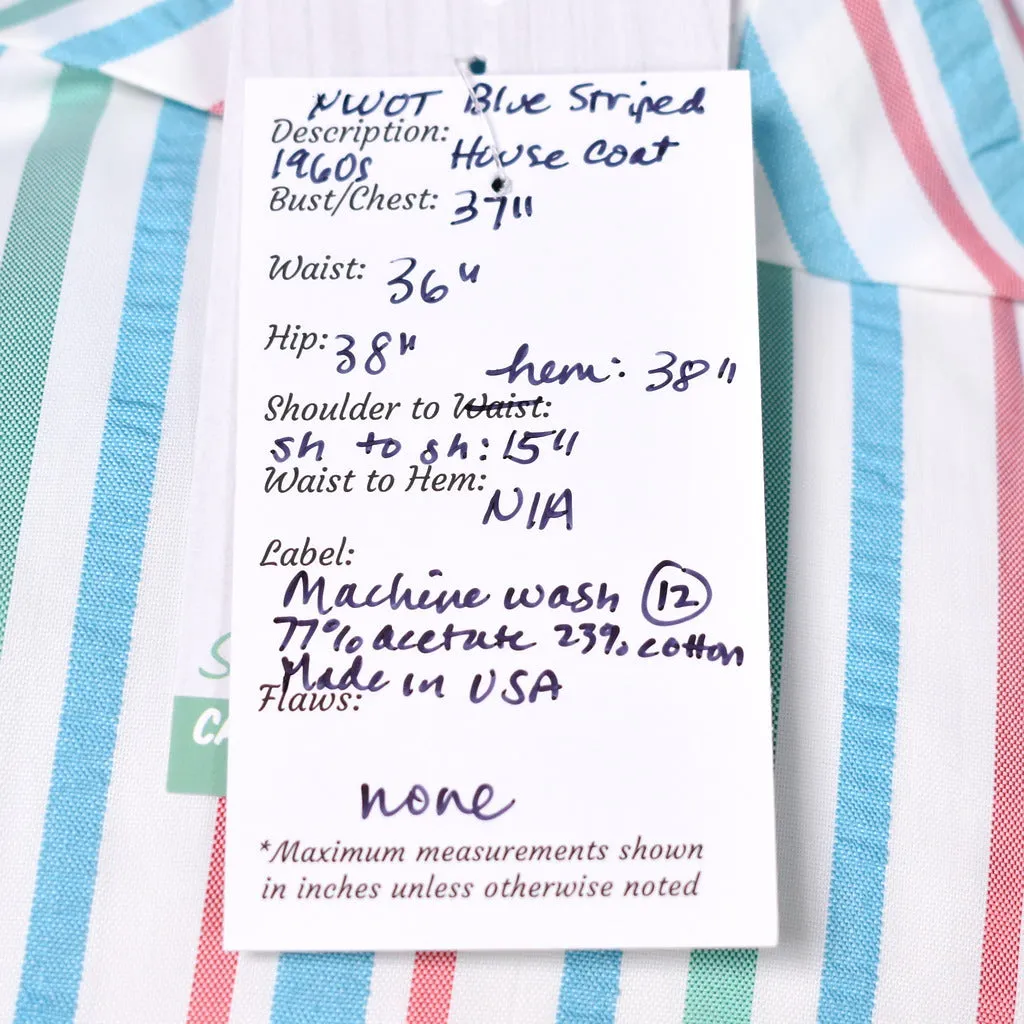 NWOT Blue Striped
Description:
1960s House Coat
Bust/Chest: 37"
Waist: 36"
Hip: 38"
hem: 38"
Shoulder to Waist:
sh to sh: 15"
Waist to Hem:
N/A
Label:
Machine wash 12
77% acetate 23% cotton
Made in USA
Flaws:
none
*Maximum measurements shown
in inches unless otherwise noted